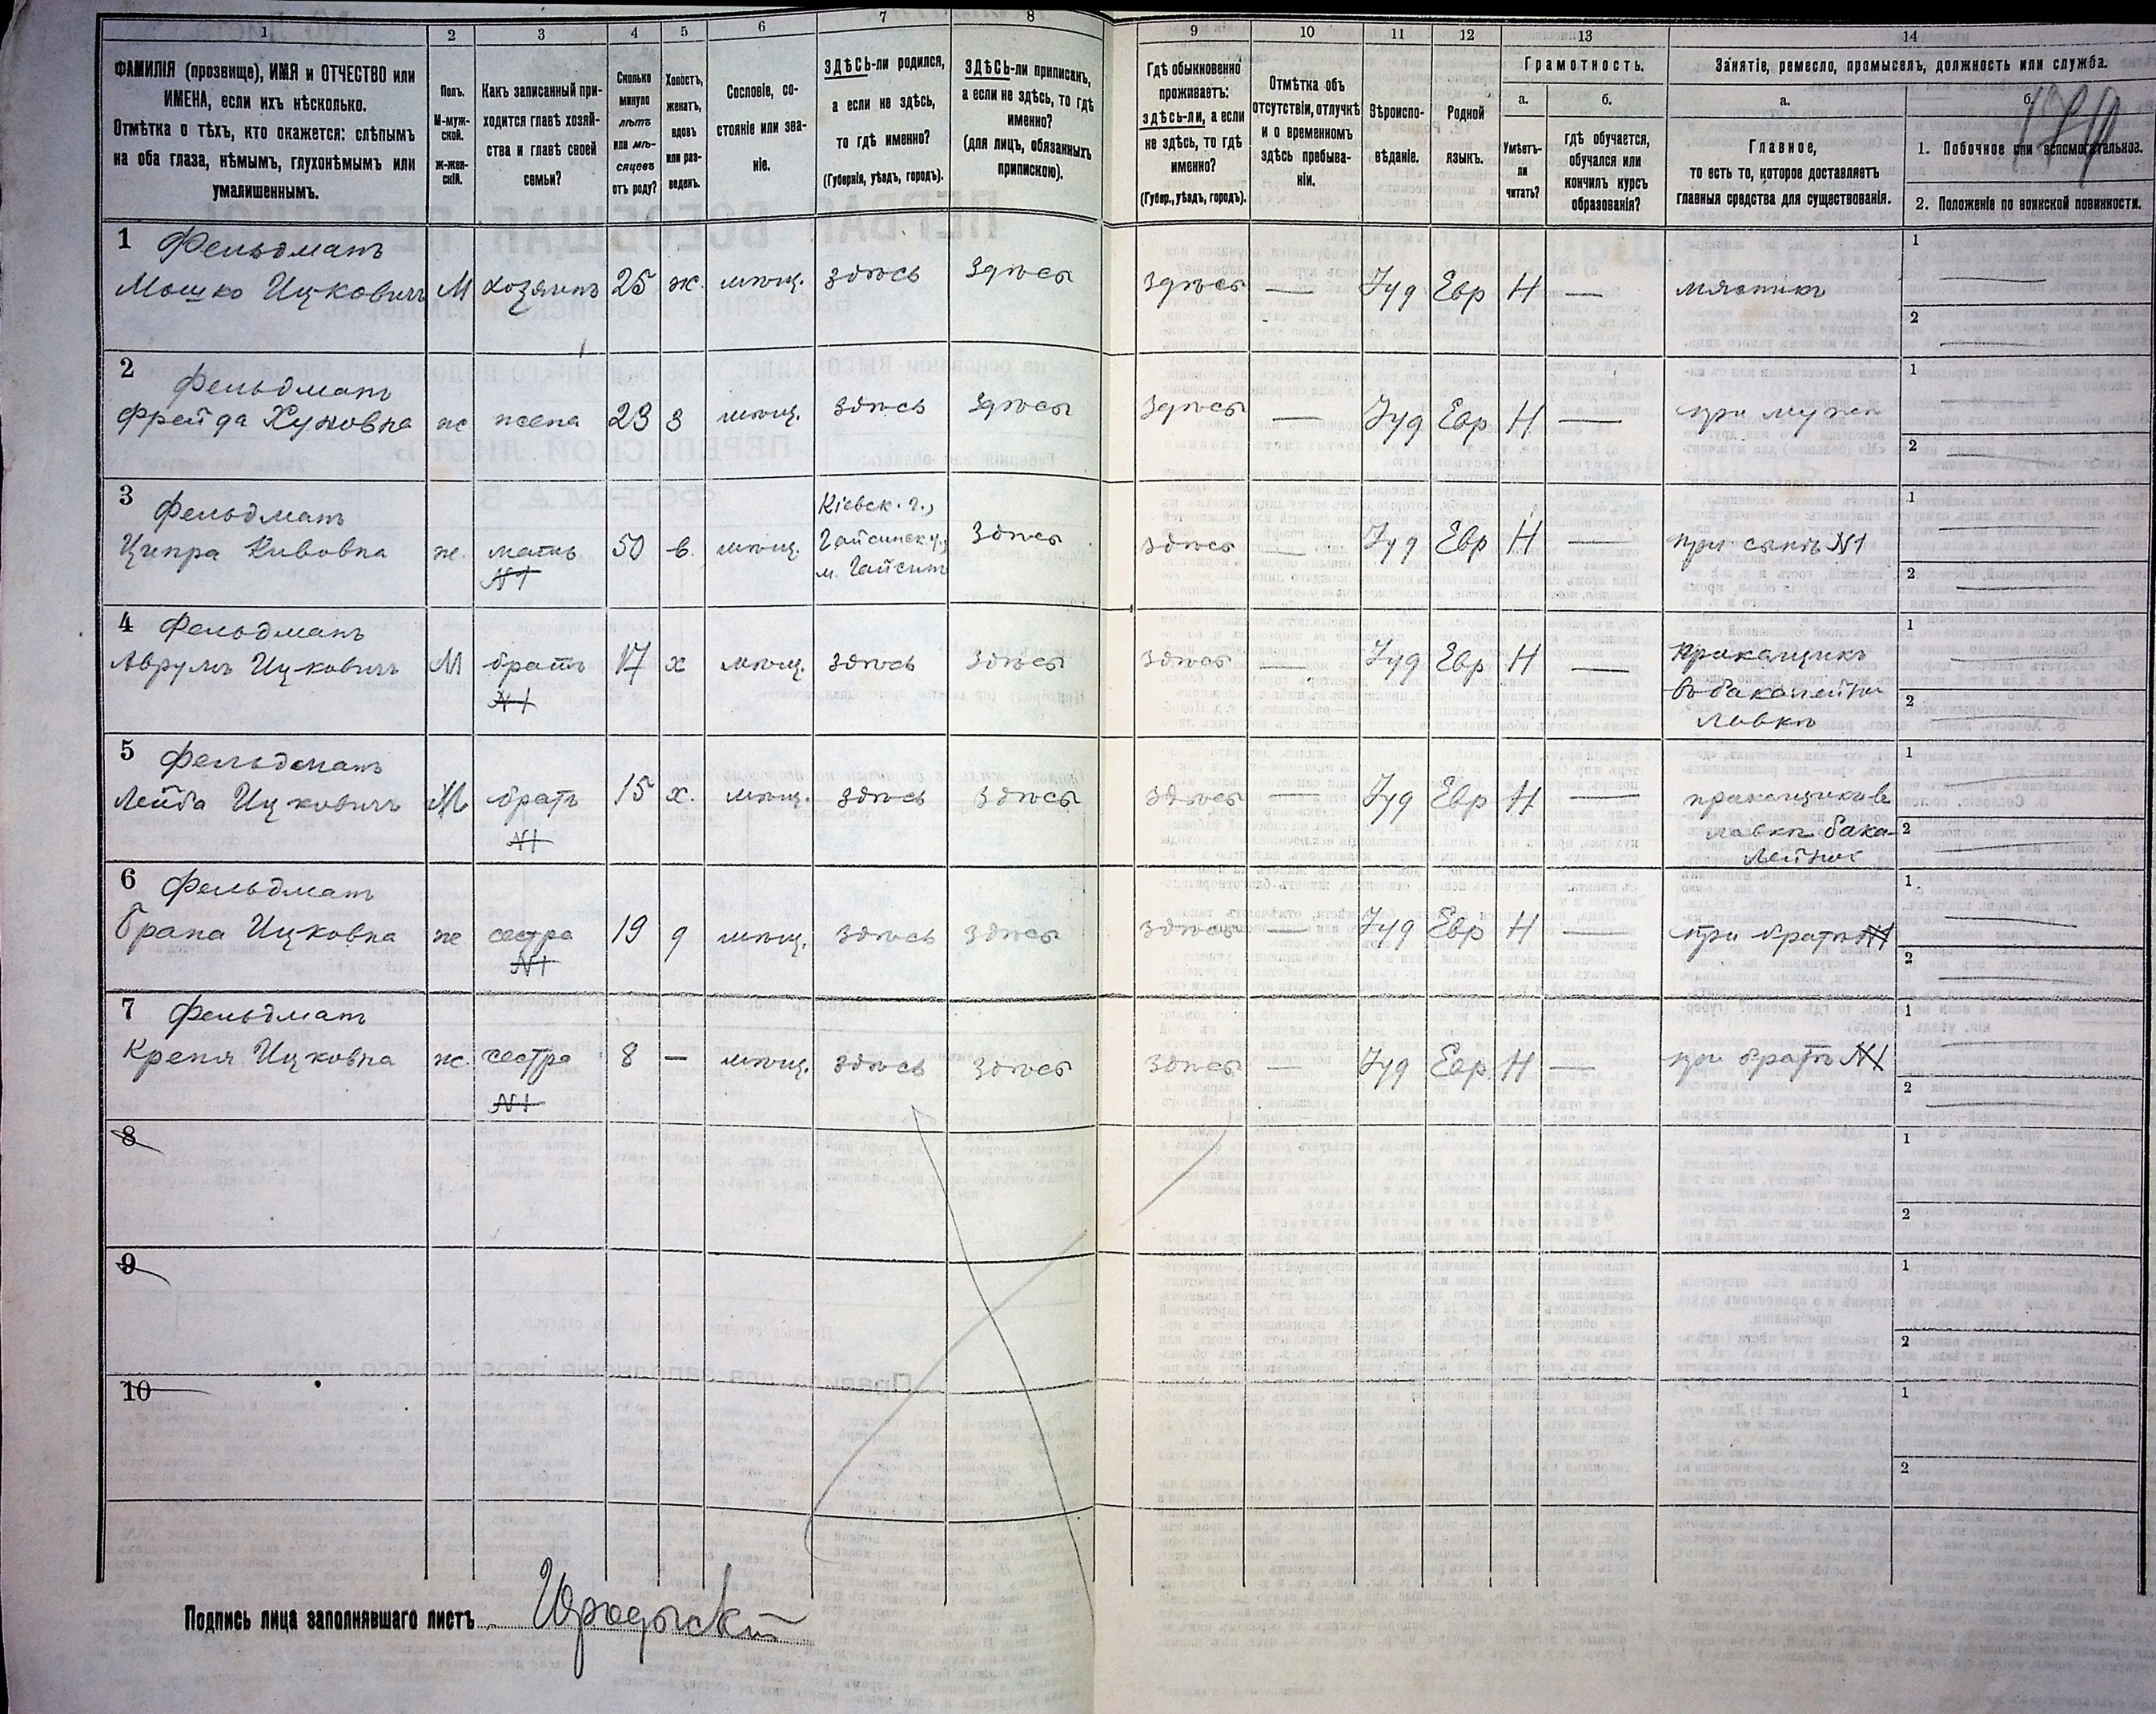 1 2 3 4 5 6 7 8 9 10 11 12 13 14
ФАМИЛІЯ (прозвище), ИМЯ и ОТЧЕСТВО или
ИМЕНА, если ихъ нѣсколько.
Отмѣтка о тѣхъ, кто окажется: слѣпымъ
на оба глаза, нѣмымъ, глухонѣмымъ или
умалишеннымъ.
Полъ.
М-муж-
ской.
Ж-жен-
скій.
Какъ записанный при-
ходится главѣ хозяй-
ства и главѣ своей
семьи?
Сколько
минуло
лѣтъ
или мѣ-
сяцевъ
отъ роду?
Холостъ,
женатъ,
вдовъ
или раз-
веденъ.
Сословіе, со-
стояніе или зва-
ніе.
ЗДѢСЬ-ли родился,
а если не здѣсь,
то гдѣ именно?
(Губернія, уѣздъ, городъ).
ЗДѢСЬ-ли приписанъ,
а если не здѣсь, то гдѣ
именно?
(для лицъ, обязанныхъ
припискою).
Гдѣ обыкновенно
проживаетъ:
здѣсь-ли, а если
не здѣсь, то гдѣ
именно?
(Губер., уѣздъ, городъ).
Отмѣтка объ
отсутствіи, отлучкѣ
и о временномъ
здѣсь пребыва-
ніи.
Вѣроиспо-
вѣданіе.
Родной
языкъ.
Грамотность.
а.
Умѣетъ-
ли
читать?
б.
гдѣ обучается,
обучался или
кончилъ курсъ
образованія?
Занятіе, ремесло, промыселъ, должность или служба.
а.
Главное,
то есть то, которое доставляетъ
главныя средства для существованія.
б.
1. Побочное или вспомогательное.
2. Положеніе по воинской повинности.
1 Фельдманъ
Мошко Ицковичъ М хозяинъ 25 ж. мѣщ. здѣсь здѣсь здѣсь — Іуд Евр Н — мясникъ
1
2
2 Фельдманъ
Фрейда Хуновна ж жена 23 з мѣщ. здѣсь здѣсь здѣсь — Іуд Евр Н — при мужѣ
1
2
3 Фельдманъ
Кіевск. г.,
Гайсинск. у.,
м. Гайсинъ
Ципра Кивовна ж. мать 50 в. мѣщ. здѣсь здѣсь — Іуд Евр Н — при сынѣ N1
N1
1
2
4 Фельдманъ
Аврумъ Ицковичъ М братъ 17 х мѣщ. здѣсь здѣсь здѣсь — Іуд Евр Н — прикащикъ
N1
въ бакалейной
лавкѣ
1
2
5 Фельдманъ
Лейба Ицковичъ М братъ 15 х. мѣщ. здѣсь здѣсь здѣсь — Іуд Евр Н — прикащикъ в
N1
лавкѣ бака-
лейной
1
2
6 Фельдманъ
Брана Ицковна ж сестра 19 д мѣщ. здѣсь здѣсь здѣсь — Іуд Евр Н — при братѣ N1
N1
1
2
7 Фельдманъ
Креня Ицковна ж. сестра 8 — мѣщ. здѣсь здѣсь здѣсь — Іуд Евр Н — при братѣ N1
N1
1
2
8
1
2
9
1
2
10
1
2
Подпись лица заполнявшаго листъ